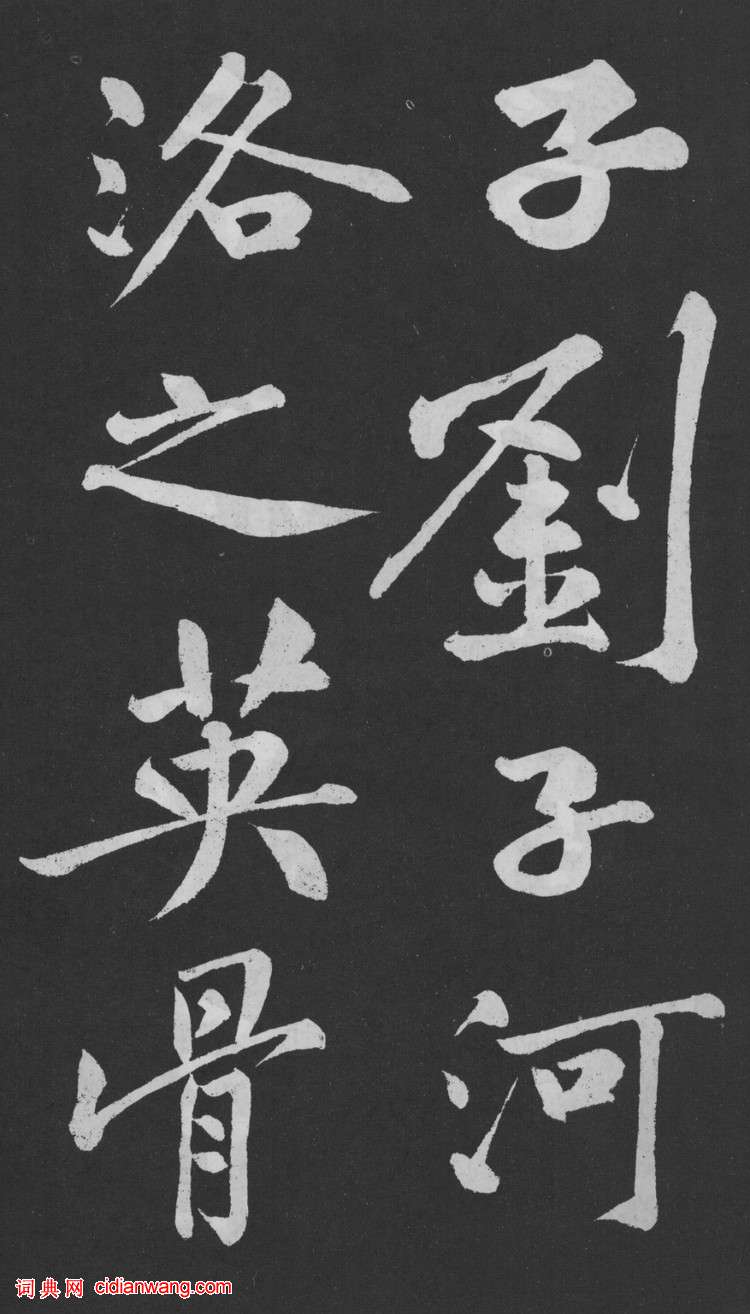 子劉子河
洛之英骨
词典网 cidianwang.com